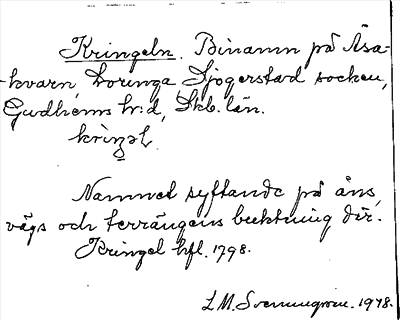 Kringeln. Binamn på Åsa-
-kvarn, Loringa, Sjogerstad socken,
Gudhems h:d, Skb. län.
krìŋəl
Namnet syftande på åns,
vägs och terrängens buktning där.
Kringel hfl. 1798.
L.M. Svenungsson. 1948.